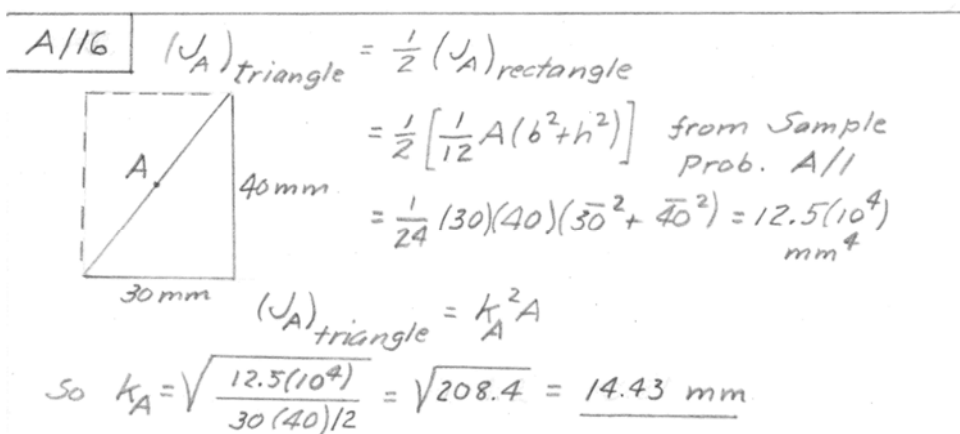 A/16 (J_A)_triangle = 1/2 (J_A)_rectangle
= 1/2 [1/12 A(b²+h²)] from Sample
Prob. A/1
A
40 mm
= 1/24 (30)(40)(3̅0̅² + 4̅0̅²) = 12.5(10⁴)
mm⁴
30 mm
(J_A)_triangle = k_A² A
So k_A = √(12.5(10⁴) / 30(40)/2) = √208.4 = 14.43 mm